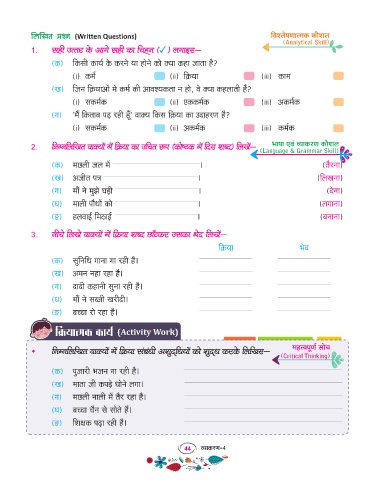 लिखित प्रश्न (Written Questions)
विश्लेषणात्मक कौशल
(Analytical Skill)
1. सही उत्तर के आगे सही का चिह्न (✓) लगाइए—
(क) किसी कार्य के करने या होने को क्या कहा जाता है?
(i) कर्म (ii) क्रिया (iii) काम
(ख) जिन क्रियाओं में कर्म की आवश्यकता न हो, वे क्या कहलाती हैं?
(i) सकर्मक (ii) एककर्मक (iii) अकर्मक
(ग) 'मैं किताब पढ़ रही हूँ' वाक्य किस क्रिया का उदाहरण है?
(i) सकर्मक (ii) अकर्मक (iii) कर्मक
भाषा एवं व्याकरण कौशल
(Language & Grammar Skill)
2. निम्नलिखित वाक्यों में क्रिया का उचित रूप (कोष्ठक में दिए शब्द) लिखें—
(क) मछली जल में । (तैरना)
(ख) अजीत पत्र । (लिखना)
(ग) माँ ने मुझे घड़ी । (देना)
(घ) माली पौधों को । (लगाना)
(ङ) हलवाई मिठाई । (बनाना)
3. नीचे लिखे वाक्यों में क्रिया शब्द छाँटकर उसका भेद लिखें—
क्रिया भेद
(क) सुनिधि गाना गा रही है।
(ख) अमन नहा रहा है।
(ग) दादी कहानी सुना रही हैं।
(घ) माँ ने सब्जी खरीदी।
(ङ) बच्चा रो रहा है।
क्रियात्मक कार्य (Activity Work)
महत्वपूर्ण सोच
(Critical Thinking)
• निम्नलिखित वाक्यों में क्रिया संबंधी अशुद्धियों को शुद्ध करके लिखिए—
(क) पुजारी भजन गा रही है।
(ख) माता जी कपड़े धोने लगा।
(ग) मछली नाली में तैर रहा है।
(घ) बच्चा चैन से सोते हैं।
(ङ) शिक्षक पढ़ा रही है।
44 व्याकरण-4